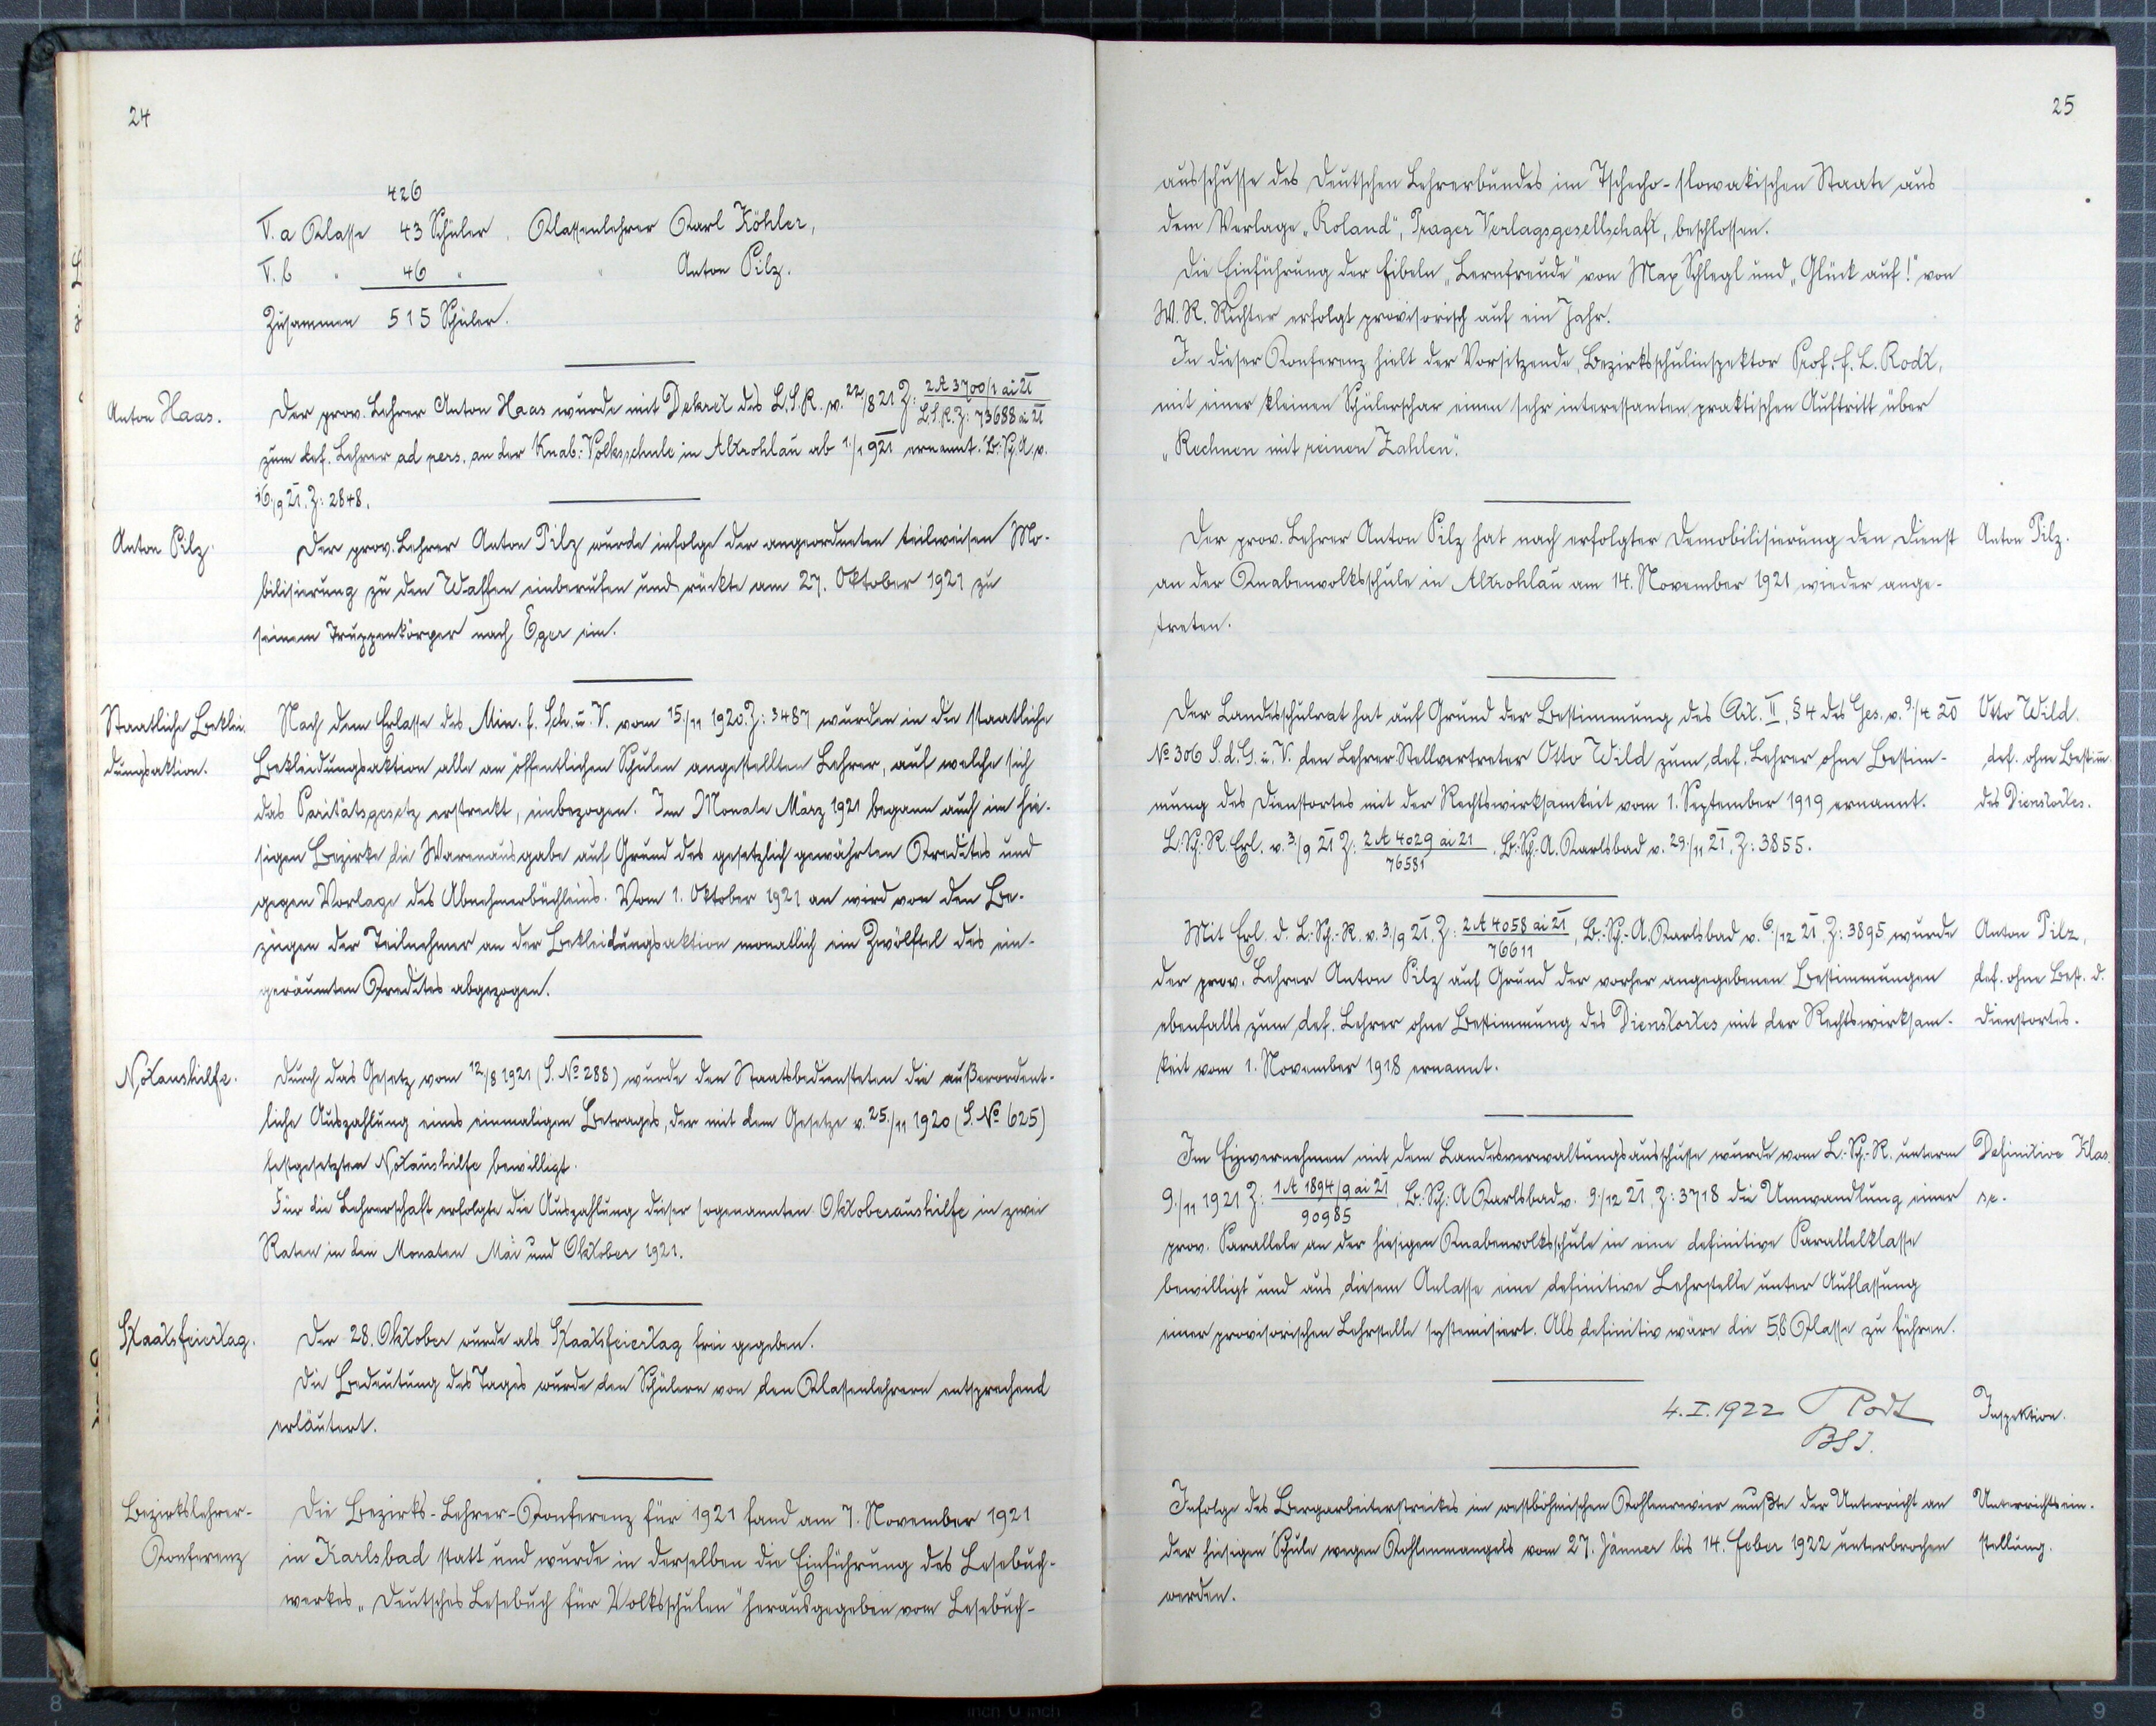 24
426
V. a Klasse 43 Schüler, Klassenlehrer Karl Köhler,
V. b " 46 " " Anton Pilz.
Zusammen 515 Schüler.
Anton Haas.
Der prov. Lehrer Anton Haas wurde mit Dekret des L.S.R. v. 22/8 21 Z: 2A 3700/1 ai 21 / L.S.R. Z: 73688 ai 21
zum def. Lehrer ad pers. an der Knab.-Volksschule in Altrohlau ab 1./1 921 ernannt. B.-Sch.A. v.
16./9 21. Z: 2848.
Anton Pilz.
Der prov. Lehrer Anton Pilz wurde infolge der angeordneten teilweisen Mo-
bilisierung zu den Waffen einberufen und rückte am 27. Oktober 1921 zu
seinem Truppenkörper nach Eger ein.
Staatliche Beklei-
dungsaktion.
Nach dem Erlasse des Min. f. Sch. u. V. vom 15./11 1920. Z: 3487 wurden in die staatliche
Bekleidungsaktion alle an öffentlichen Schulen angestellten Lehrer, auf welche sich
das Paritätsgesetz erstreckt, einbezogen. Im Monate März 1921 begann auch im hie-
sigen Bezirke die Warenausgabe auf Grund des gesetzlich gewährten Kredites und
gegen Vorlage des Abnehmerbüchleins. Vom 1. Oktober 1921 an wird von den Be-
zügen der Teilnehmer an der Bekleidungsaktion monatlich ein Zwölftel des ein-
geräumten Kredites abgezogen.
Notaushilfe.
Durch das Gesetz vom 12/8 1921 (S. No 288) wurde den Staatsbediensteten die außerordent-
liche Auszahlung eines einmaligen Betrages, der mit dem Gesetze v. 25./11 1920 (S. No 625)
festgesetzten Notaushilfe bewilligt.
Für die Lehrerschaft erfolgte die Auszahlung dieser sogenannten Oktoberaushilfe in zwei
Raten in den Monaten Mai und Oktober 1921.
Staatsfeiertag.
Der 28. Oktober wurde als Staatsfeiertag frei gegeben.
Die Bedeutung des Tages wurde den Schülern von den Klassenlehrern entsprechend
erläutert.
Bezirkslehrer-
Konferenz
Die Bezirks-Lehrer-Konferenz für 1921 fand am 7. November 1921
in Karlsbad statt und wurde in derselben die Einführung des Lesebuch-
werkes „Deutsches Lesebuch für Volksschulen" herausgegeben vom Lesebuch-
25
ausschusse des Deutschen Lehrerbundes im Tschecho-slowakischen Staate aus
dem Verlage „Roland", Prager Verlagsgesellschaft, beschlossen.
Die Einführung der Fibeln „Lernfreude" von Max Schlegl und „Glück auf!" von
W. R. Richter erfolgt provisorisch auf ein Jahr.
In dieser Konferenz hielt der Vorsitzende, Bezirksschulinspektor Prof. F. L. Rodt,
mit einer kleinen Schülerschar einen sehr interessanten praktischen Auftritt über
„Rechnen mit reinen Zahlen."
Der prov. Lehrer Anton Pilz hat nach erfolgter Demobilisierung den Dienst
an der Knabenvolksschule in Altrohlau am 14. November 1921 wieder ange-
treten.
Anton Pilz.
Der Landesschulrat hat auf Grund der Bestimmung des Art. II, § 4 des Ges. v. 9./4 20
No 306 S. d. G. u. V. den Lehrer-Stellvertreter Otto Wild zum def. Lehrer ohne Bestim-
mung des Dienstortes mit der Rechtswirksamkeit vom 1. September 1919 ernannt.
L.-Sch.-R. Erl. v. 3./9 21 Z: 2 A 4029 ai 21 / 76581. B.-Sch.-A. Karlsbad v. 29./11 21. Z: 3855.
Otto Wild.
def. ohne Bestim̄.
des Dienstortes.
Mit Erl. d. L.-Sch.-R. v. 3./9 21. Z: 2 A 4058 ai 21 / 76611, B.-Sch.-A. Karlsbad v. 6./12 21, Z: 3895 wurde
der prov. Lehrer Anton Pilz auf Grund der vorher angegebenen Bestimmungen
ebenfalls zum def. Lehrer ohne Bestimmung des Dienstortes mit der Rechtswirksam-
keit vom 1. November 1918 ernannt.
Anton Pilz,
def. ohne Best. d.
Dienstortes.
Im Einvernehmen mit dem Landesverwaltungsausschusse wurde vom L.-Sch.-R. unterm
9./11 1921 Z: 1 A 1894/9 ai 21 / 90985. B.-Sch.-A. Karlsbad v. 9./12 21, Z: 3718 die Umwandlung einer
prov. Parallele an der hiesigen Knabenvolksschule in eine definitive Parallelklasse
bewilligt und aus diesem Anlasse eine definitive Lehrstelle unter Auflassung
einer provisorischen Lehrstelle systemisiert. Als definitiv wäre die 5.b Klasse zu führen.
Definitive Klas-
se.
4. I. 1922 Rodt
BSI.
Inspektion.
Infolge des Bergarbeiterstreikes im westböhmischen Kohlenrevier mußte der Unterricht an
der hiesigen Schule wegen Kohlenmangels vom 27. Jänner bis 14. Feber 1922 unterbrochen
werden.
Unterrichtsein-
stellung.